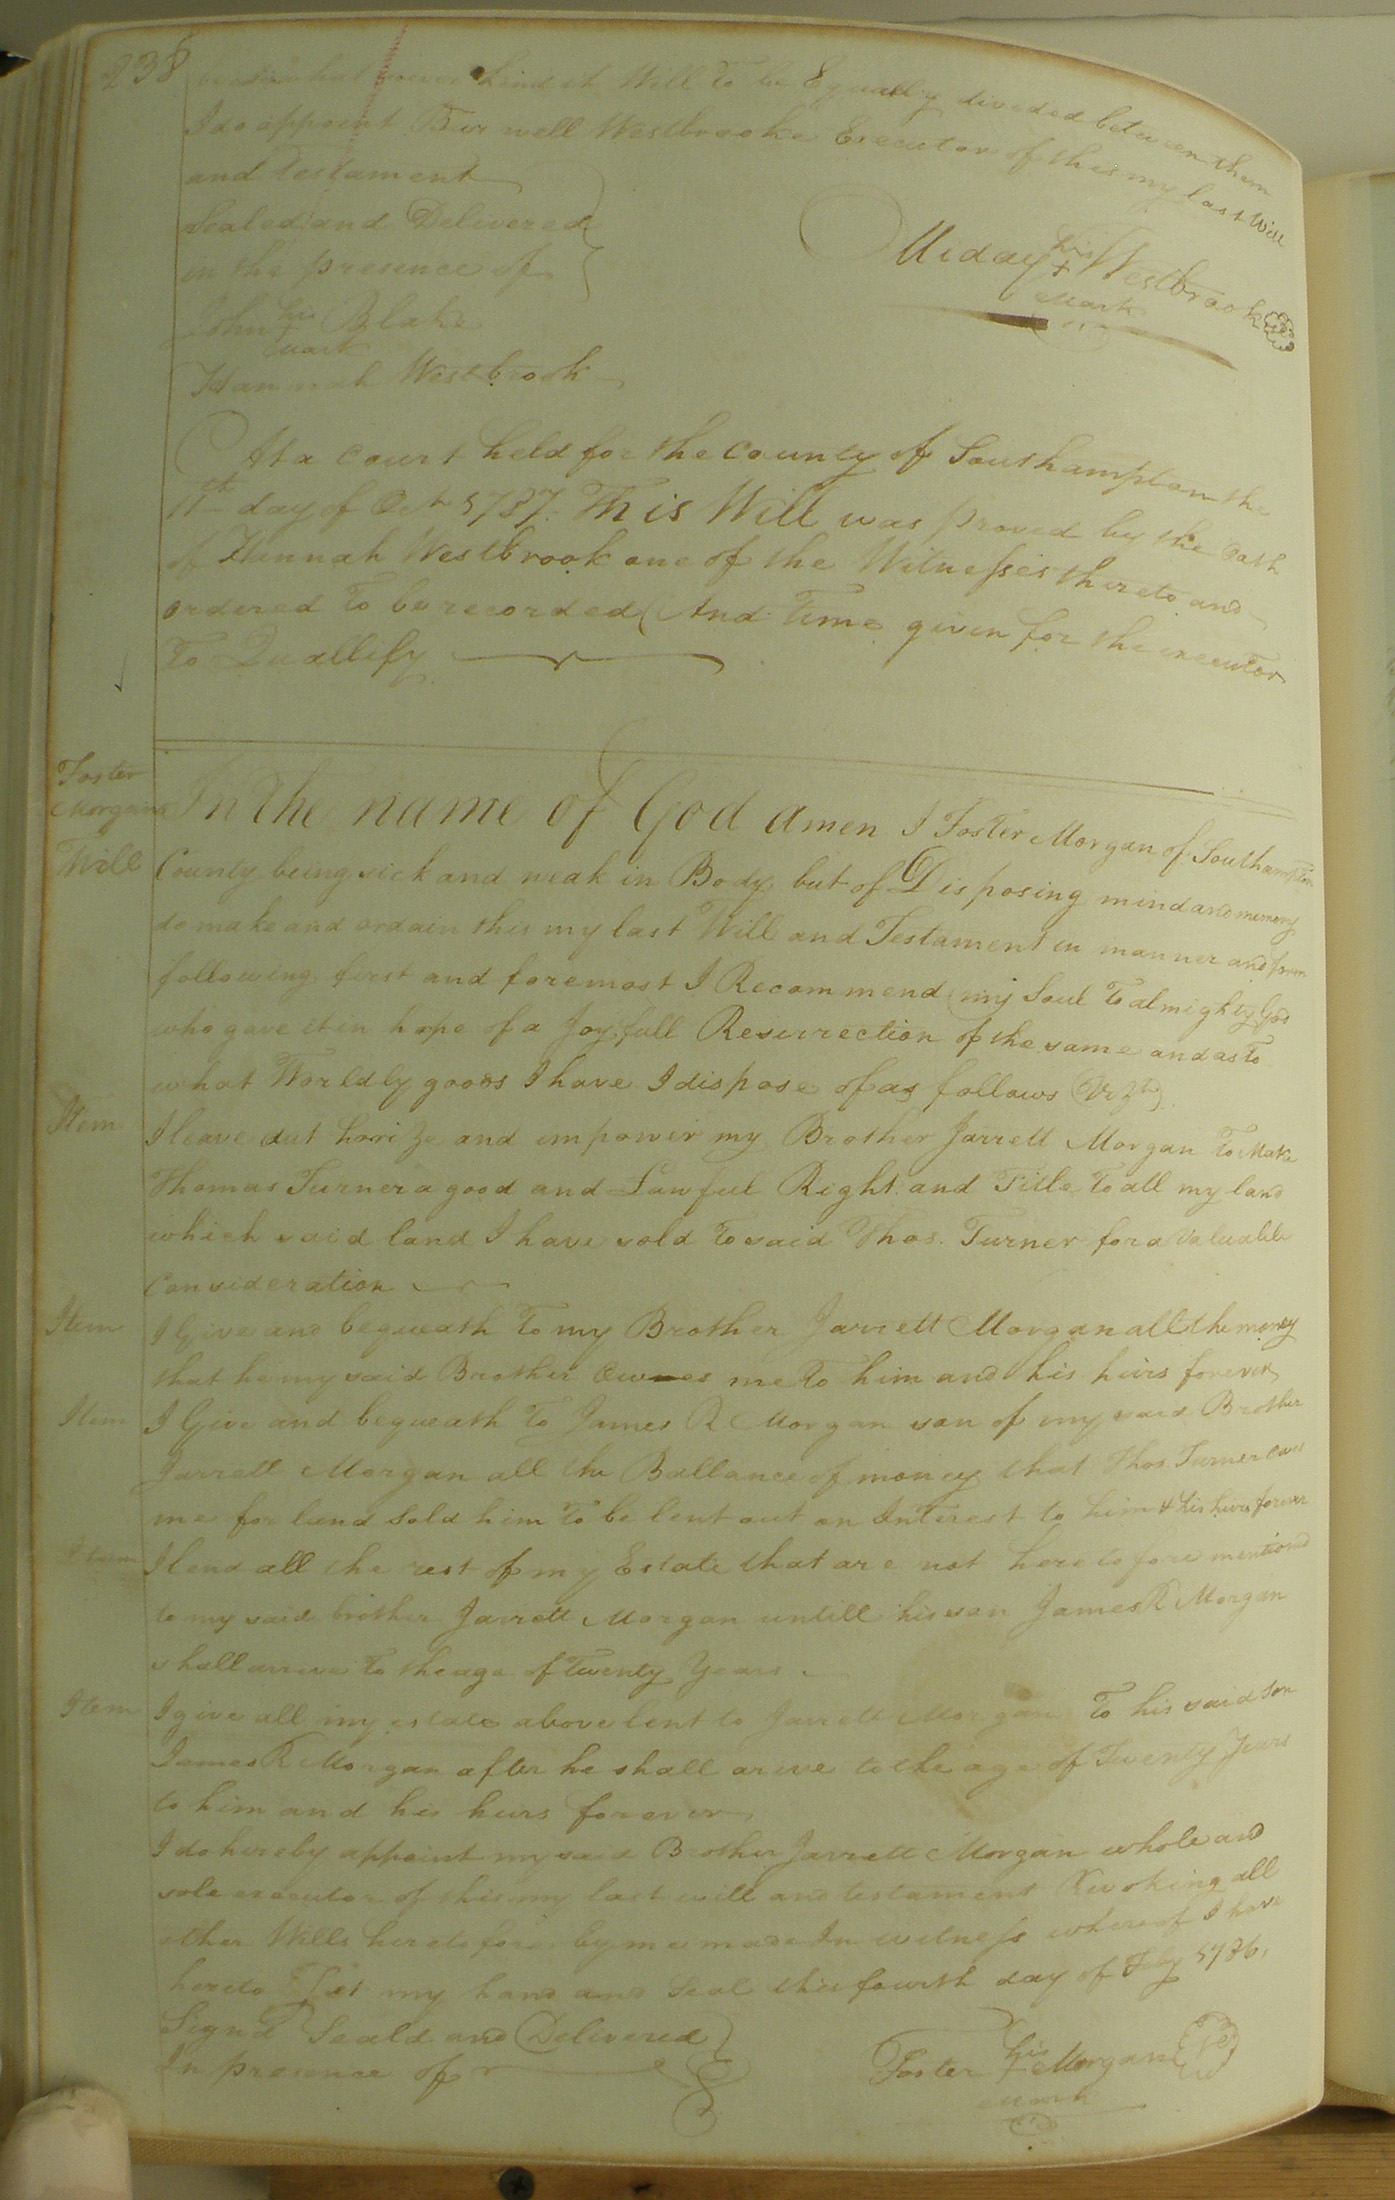 238
kind it Will To be Equally divided between them
I do appoint Burwell Westbrooke Executor of this my last Will
and Testament
Sealed and Delivered
in the presence of
Miday his + Westbrook
Mark
John his Blake
mark
Hannah Westbrook
At a Court held for the County of Southampton the
11th day of Oct 1787. This Will was proved by the Oath
of Hannah Westbrook one of the Witnesses thereto and
ordered To be recorded And Time given for the executor
To Quallify
Foster
Morgans
Will
In the name of God amen I Foster Morgan of Southampton
County being sick and weak in Body but of Disposing mind and memory
do make and ordain this my last Will and Testament in manner and form
following first and foremost I Recommend my Soul To almighty God
who gave it in hope of a Joyfull Resurrection of the same and as To
what Worldly goods I have I dispose of as follows Vizt
Item I leave authorize and impower my Brother Jarrett Morgan To Make
Thomas Turner a good and Lawful Right and Title To all my land
which said land I have sold To said Thos. Turner for a Valuable
Consideration
Item I Give and bequeath To my Brother Jarrett Morgan all the money
that he my said Brother owes me To him and his heirs forever
Item I Give and bequeath To James R Morgan son of my said Brother
Jarrett Morgan all the Ballance of money that Thos Turner owes
me for land Sold him To be lent out on Interest to him & his heirs forever
Item I lend all the rest of my Estate that are not heretofore mentiond
to my said brother Jarrett Morgan untill his son James R Morgan
shall arrive To the age of Twenty Years
Item I give all my estate above lent to Jarrett Morgan To his said Son
James R Morgan after he shall arive to the age of Twenty Years
to him and his heirs forever
I do hereby appoint my said Brother Jarrett Morgan whole and
sole executor of this my last will and testament Revoking all
other Wills heretofore by me made In witness whereof I have
hereto Set my hand and Seal this fourth day of Feby 1786.
Signd Seald and Delivered
In presence of
Foster his + Morgan
mark